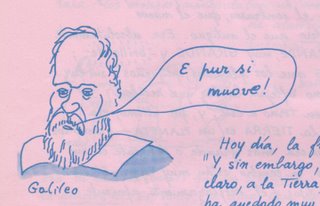 E pur si
muove!
Galileo
Hoy día, la
"Y, sin embargo,
claro, a la Tierra
ha quedado muy